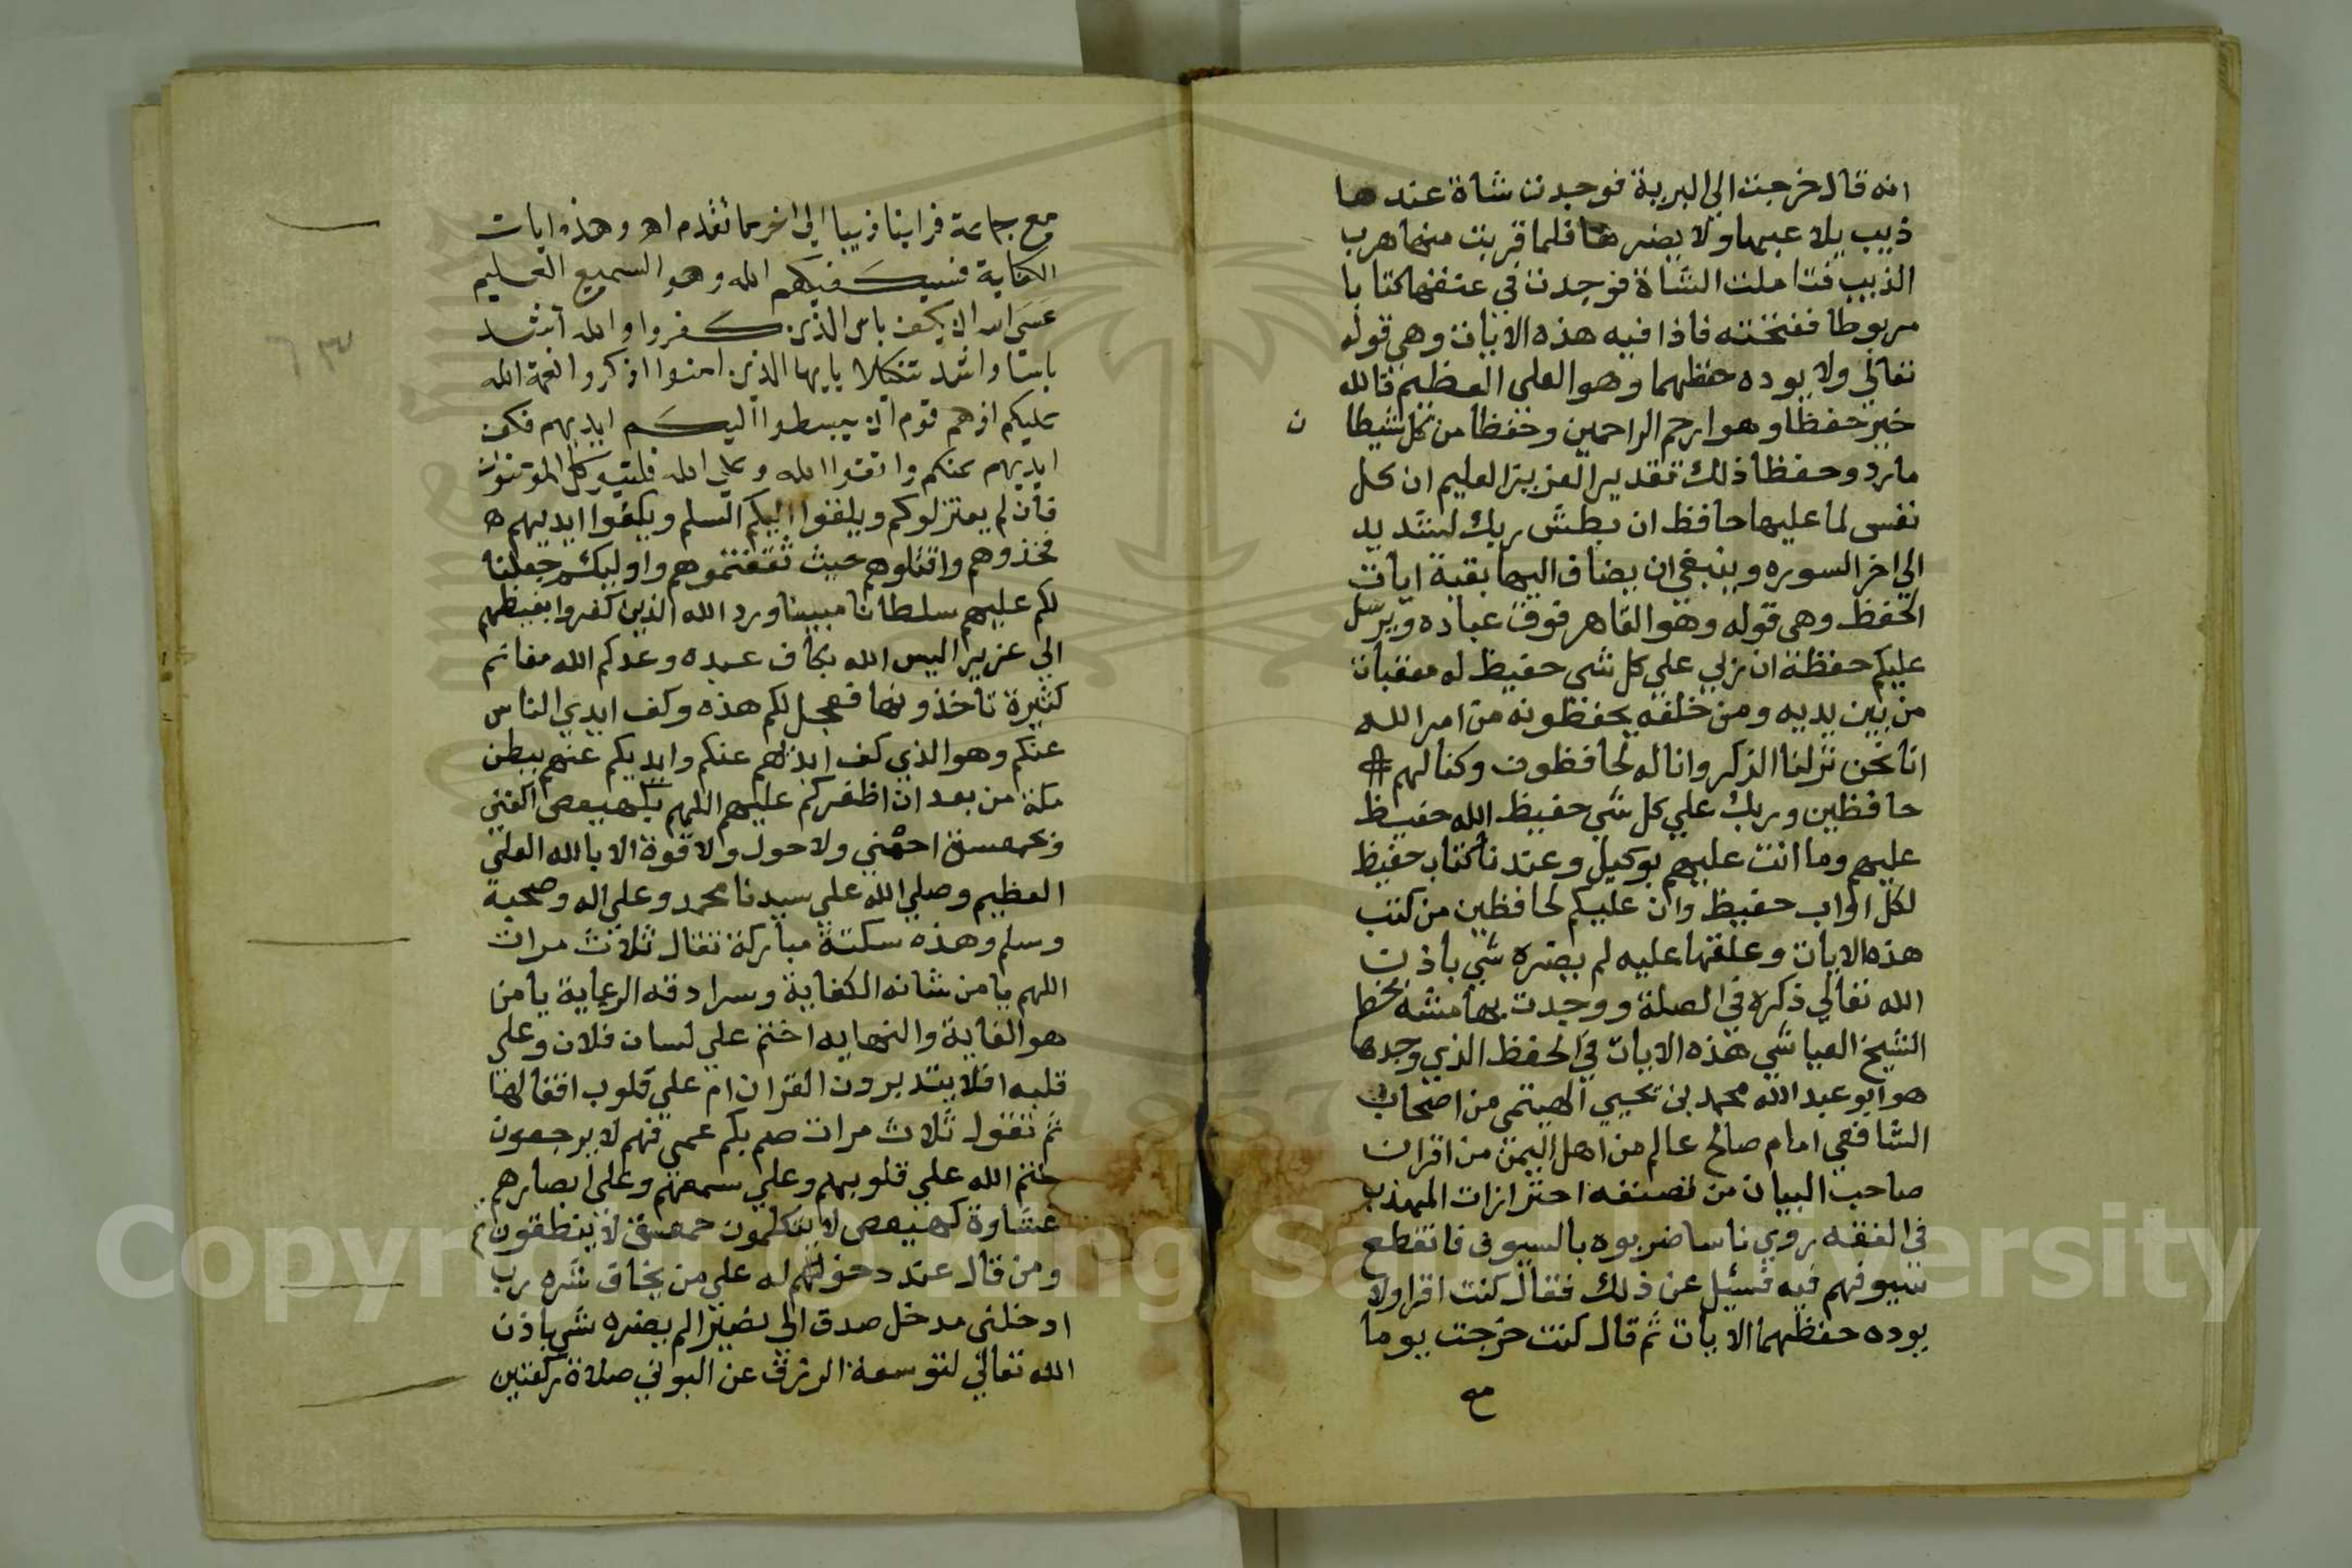 انه قال خرجت الي البرية فوجدت شاة عندها
ذيب يلاعبها ولا يضرها فلما قربت منهما هرب
الذيب فتاملت الشاة فوجدت في عنقها كتابا
مربوطا ففتحته فاذا فيه هذه الايات وهي قوله
تعالي ولا يوده حفظهما وهو العلي العظيم فالله
خير حفظا وهو ارحم الراحمين وحفظا من كل شيطا
ن
مارد وحفظا ذلك تقدير العزيز العليم ان كل
نفس لما عليها حافظ ان بطش ربك لشديد
الي اخر السوره وينبغي ان يضاف اليها بقية ايات
الحفظ وهي قوله وهو القاهر فوق عباده ويرسل
عليكم حفظة ان ربي علي كل شي حفيظ له معقبات
من بين يديه ومن خلفه يحفظونه من امر الله
انا نحن نزلنا الذكر وانا له لحافظون وكنا لهم
حافظين وربك علي كل شي حفيظ الله حفيظ
عليهم وما انت عليهم بوكيل وعندنا كتاب حفيظ
لكل اواب حفيظ وان عليكم لحافظين من كتب
هذه الايات وعلقها عليه لم يضره شي باذن
الله تعالي ذكره في الصلة ووجدت بهامشه بخط
الشيخ العياشي هذه الايات في الحفظ الذي وجدها
هو ابو عبد الله محمد بن يحيي الهيتمي من اصحاب
الشافعي امام صالح عالم من اهل اليمن من اقران
صاحب البيان من تصنفه احترازات المهذب
في الفقه روي ناسا ضربوه بالسيوف فانقطع
سيوفهم فيه فسئل عن ذلك فقال كنت اقرا ولا
يوده حفظهما الايات ثم قال كنت خرجت يوما
مع
مع جماعة فراينا ذيبا الي اخر ما تقدم اهـ وهذه ايات
الكفاية فسيكفيكهم الله وهو السميع العليم
عسي الله ان يكف باس الذين كفروا والله اشد
باسا واشد تنكيلا يايها الذين امنوا اذكروا نعمة الله
عليكم اذ هم قوم ان يبسطوا اليكم ايديهم فكف
ايديهم عنكم واتقوا الله وعلي الله فليتوكل المؤمنون
فان لم يعتزلوكم ويلقوا اليكم السلم ويكفوا ايديهم
فخذوهم واقتلوهم حيث ثقفتموهم واوليكم جعلنا
لكم عليهم سلطانا مبينا ورد الله الذين كفروا بغيظهم
الي عزيزا اليس الله بكاف عبده وعدكم الله مغانم
كثيرة تاخذونها فعجل لكم هذه وكف ايدي الناس
عنكم وهو الذي كف ايديهم عنكم وايديكم عنهم ببطن
مكة من بعد ان اظفركم عليهم اللهم بكهيعص اكفني
وبحمعسق احمني ولا حول ولا قوة الا بالله العلي
العظيم وصلي الله علي سيدنا محمد وعلي اله وصحبه
وسلم وهذه سكتة مباركة تقال ثلاث مرات
اللهم يا من شانه الكفاية وسرادقه الرعاية يا من
هو الغاية والنهايه اختم علي لسان فلان وعلي
قلبه افلا يتدبرون القران ام علي قلوب اقفالها
ثم تقول ثلاث مرات صم بكم عمي فهم لا يرجعون
ختم الله علي قلوبهم وعلي سمعهم وعلي ابصارهم
غشاوة كهيعص لا يتكلمون حمعسق لا ينطقون
ومن قال عند دخوله علي من يخاف شره رب
ادخلني مدخل صدق الي نصيرا لم يضره شي باذن
الله تعالي لتوسعة الرزق عن البوني صلاة ركعتين
٦٣
Copyright © King Saud University
1957